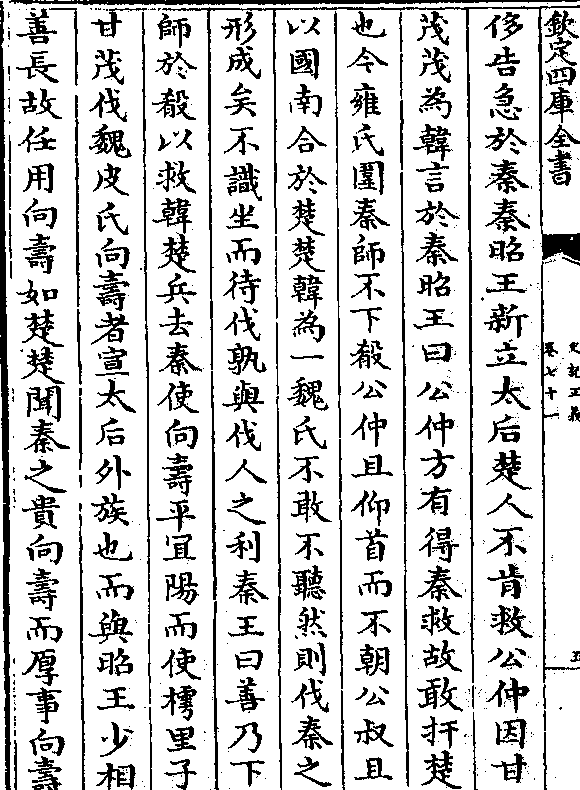 欽定四庫全書
史記正義
卷七十一
五
侈告急於秦秦昭王新立太后楚人不肯救公仲因甘
茂茂為韓言於秦昭王曰公仲方有得秦救故敢扞楚
也今雍氏圍秦師不下殽公仲且仰首而不朝公叔且
以國南合於楚楚韓為一魏氏不敢不聽然則伐秦之
形成矣不識坐而待伐孰與伐人之利秦王曰善乃下
師於殽以救韓楚兵去秦使向壽平宜陽而使樗里子
甘茂伐魏皮氏向壽者宣太后外族也而與昭王少相
善長故任用向壽如楚楚聞秦之貴向壽而厚事向壽